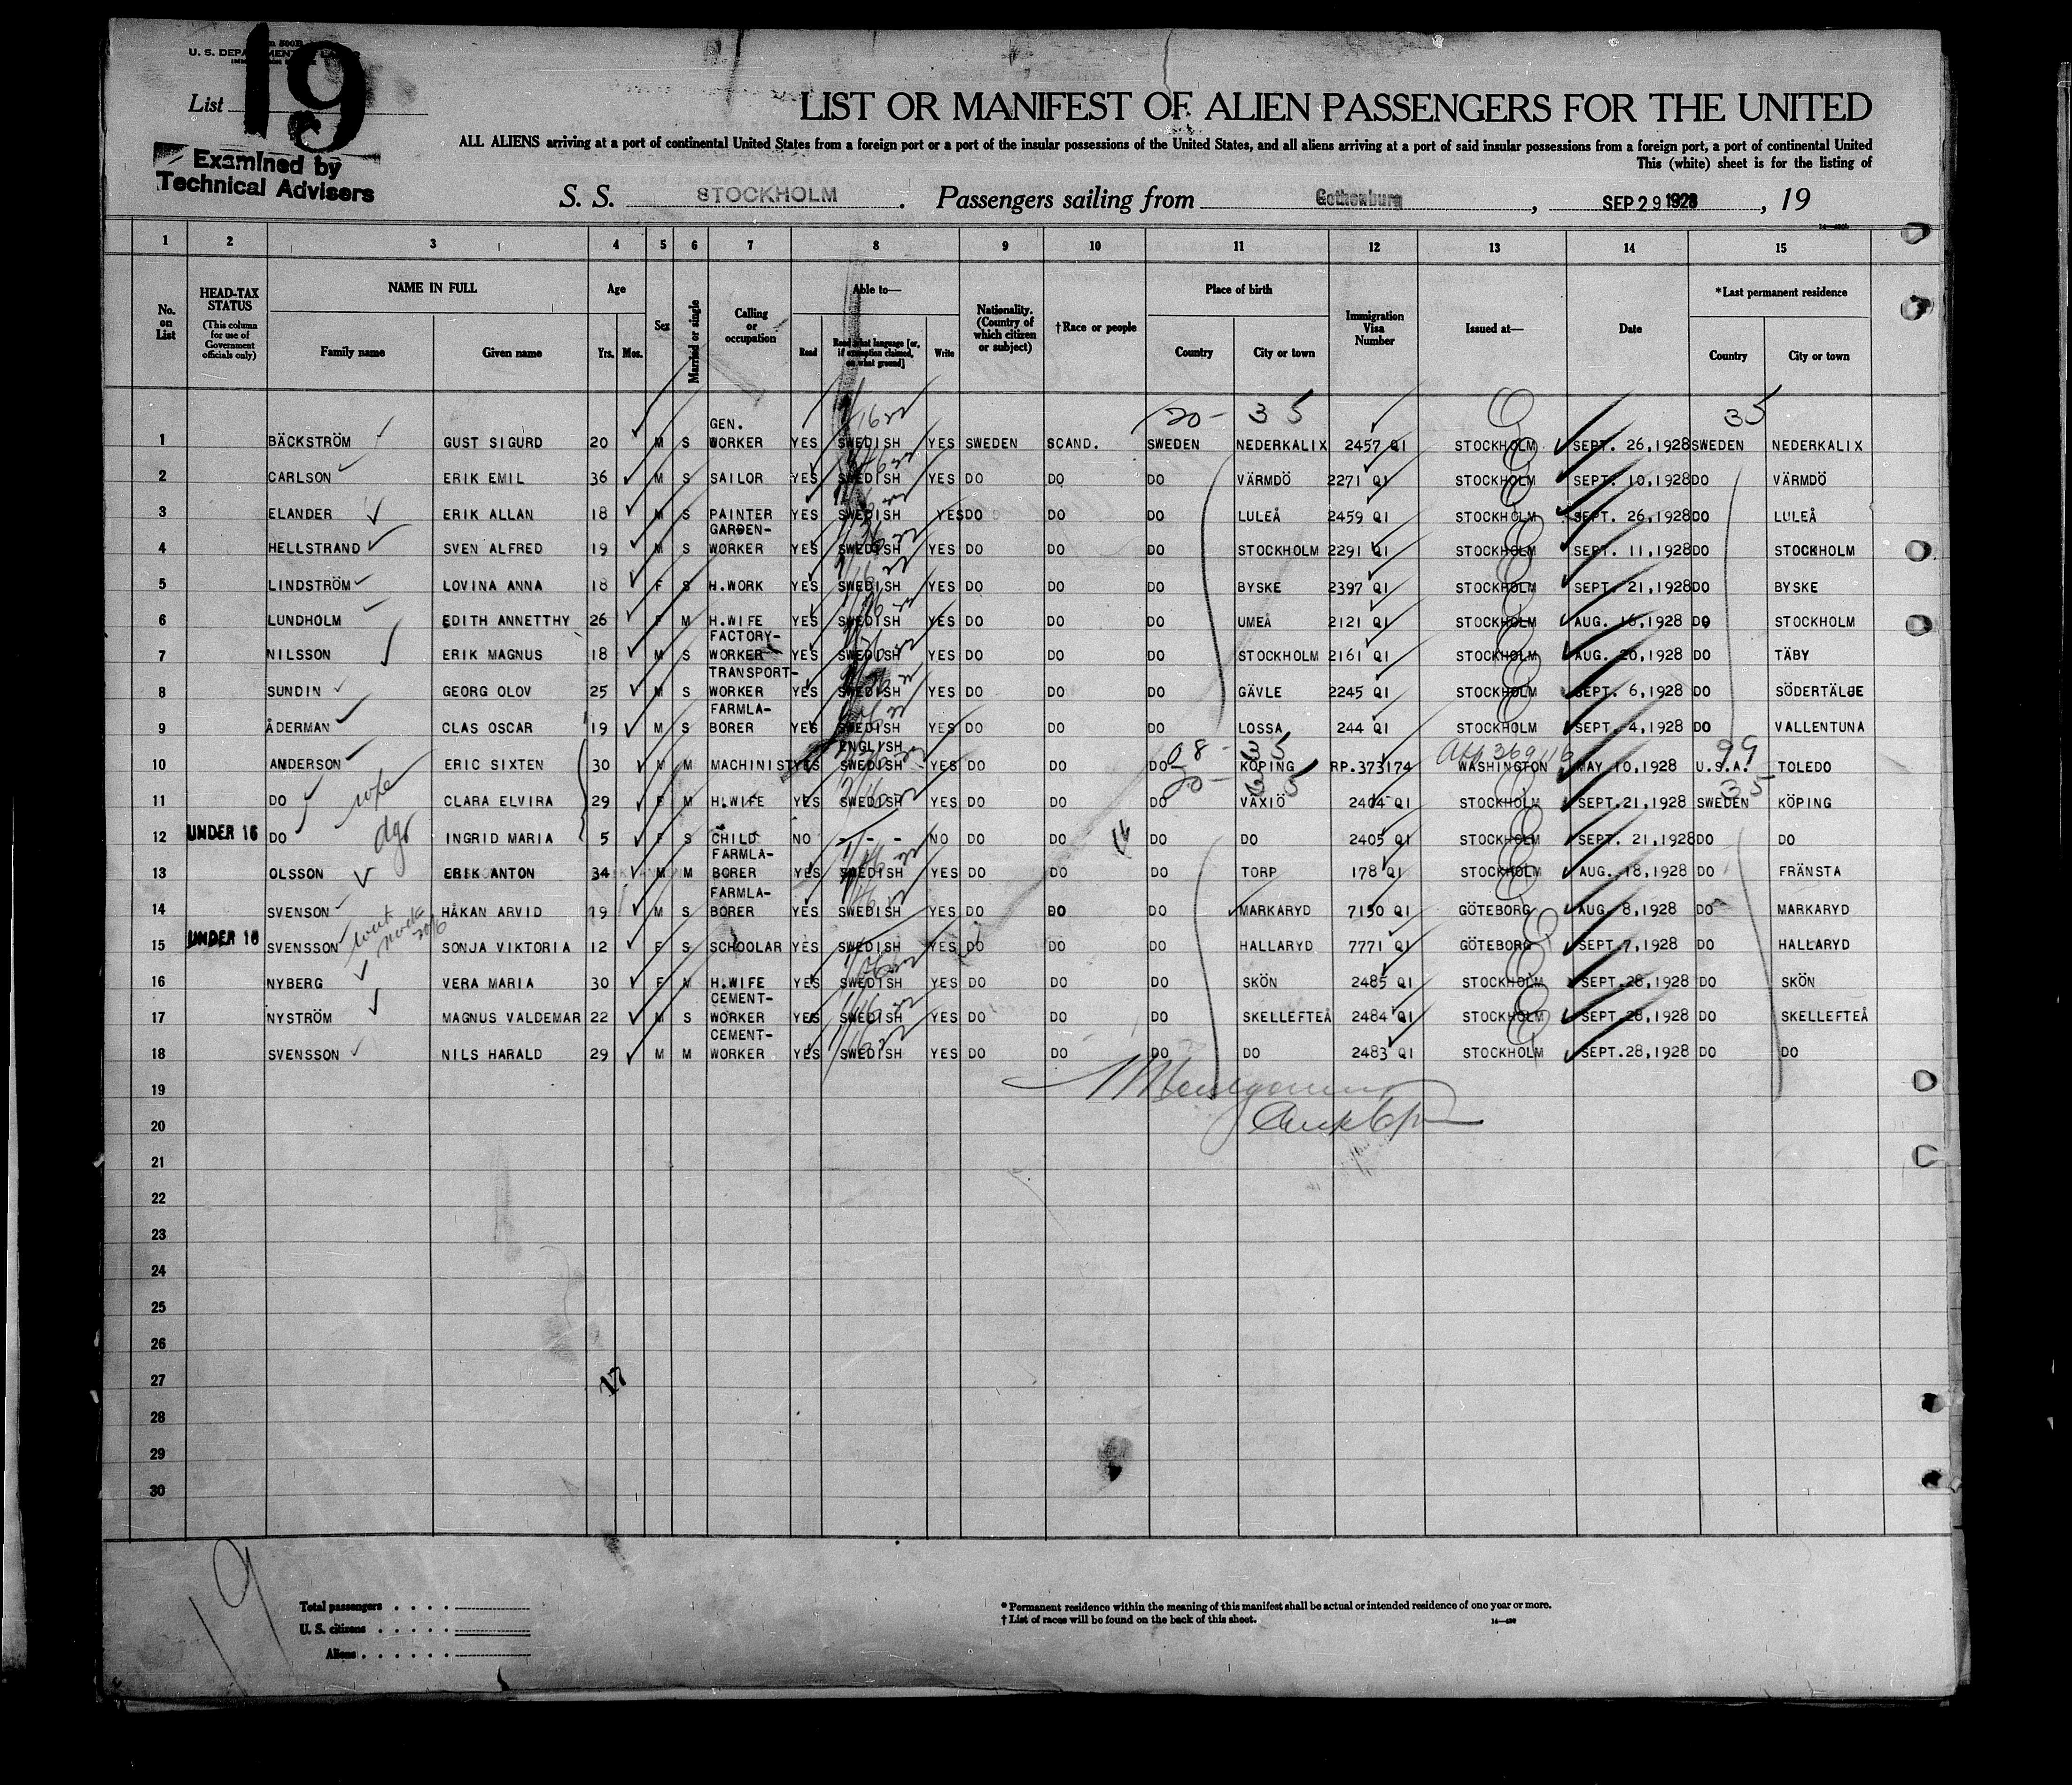 U. S. DEPARTMENT
List 19
Examined by
Technical Advisers
LIST OR MANIFEST OF ALIEN PASSENGERS FOR THE UNITED
ALL ALIENS arriving at a port of continental United States from a foreign port or a port of the insular possessions of the United States, and all aliens arriving at a port of said insular possessions from a foreign port, a port of continental United
This (white) sheet is for the listing of
S. S. STOCKHOLM . Passengers sailing from Gothenburg , SEP 29 1928 , 19
1 2 3 4 5 6 7 8 9 10 11 12 13 14 15
No. on List
HEAD-TAX STATUS (This column for use of Government officials only)
NAME IN FULL Family name Given name
Age Yrs. Mos.
Sex
Married or single
Calling or occupation
Able to— Read Read what language [or, if exemption claimed, on what ground] Write
Nationality. (Country of which citizen or subject)
†Race or people
Place of birth Country City or town
Immigration Visa Number
Issued at—
Date
*Last permanent residence Country City or town
20- 35 35
1 BÄCKSTRÖM GUST SIGURD 20 M S GEN. WORKER YES SWEDISH YES SWEDEN SCAND. SWEDEN NEDERKALIX 2457 QI STOCKHOLM SEPT. 26,1928 SWEDEN NEDERKALIX
2 CARLSON ERIK EMIL 36 M S SAILOR YES SWEDISH YES DO DO DO VÄRMDÖ 2271 QI STOCKHOLM SEPT. 10,1928 DO VÄRMDÖ
3 ELANDER ERIK ALLAN 18 M S PAINTER YES SWEDISH YES DO DO DO LULEÅ 2459 QI STOCKHOLM SEPT. 26,1928 DO LULEÅ
4 HELLSTRAND SVEN ALFRED 19 M S GARDEN-WORKER YES SWEDISH YES DO DO DO STOCKHOLM 2291 QI STOCKHOLM SEPT. 11,1928 DO STOCKHOLM
5 LINDSTRÖM LOVINA ANNA 18 F S H.WORK YES SWEDISH YES DO DO DO BYSKE 2397 QI STOCKHOLM SEPT. 21,1928 DO BYSKE
6 LUNDHOLM EDITH ANNETTHY 26 F M H.WIFE YES SWEDISH YES DO DO DO UMEÅ 2121 QI STOCKHOLM AUG. 16,1928 DO STOCKHOLM
7 NILSSON ERIK MAGNUS 18 M S FACTORY-WORKER YES SWEDISH YES DO DO DO STOCKHOLM 2161 QI STOCKHOLM AUG. 20,1928 DO TÄBY
8 SUNDIN GEORG OLOV 25 M S TRANSPORT-WORKER YES SWEDISH YES DO DO DO GÄVLE 2245 QI STOCKHOLM SEPT. 6,1928 DO SÖDERTÄLJE
9 ÅDERMAN CLAS OSCAR 19 M S FARMLA-BORER YES SWEDISH YES DO DO DO LOSSA 244 QI STOCKHOLM SEPT. 4,1928 DO VALLENTUNA
08- 35 99
10 ANDERSON ERIC SIXTEN 30 M M MACHINIST YES ENGLISH SWEDISH YES DO DO DO KÖPING RP.373174 WASHINGTON MAY 10,1928 U.S.A. TOLEDO
20- 35 35
11 DO wife CLARA ELVIRA 29 F M H.WIFE YES SWEDISH YES DO DO DO VÄXIÖ 2404 QI STOCKHOLM SEPT.21,1928 SWEDEN KÖPING
12 UNDER 16 DO dgr INGRID MARIA 5 F S CHILD NO - - - NO DO DO DO DO 2405 QI STOCKHOLM SEPT. 21,1928 DO DO
13 OLSSON ERIK ANTON 34 M M FARMLA-BORER YES SWEDISH YES DO DO DO TORP 178 QI STOCKHOLM AUG. 18,1928 DO FRÄNSTA
14 SVENSON HÅKAN ARVID 19 M S FARMLA-BORER YES SWEDISH YES DO DO DO MARKARYD 7150 QI GÖTEBORG AUG. 8,1928 DO MARKARYD
15 UNDER 16 SVENSSON SONJA VIKTORIA 12 F S SCHOOLAR YES SWEDISH YES DO DO DO HALLARYD 7771 QI GÖTEBORG SEPT.7,1928 DO HALLARYD
16 NYBERG VERA MARIA 30 F M H.WIFE YES SWEDISH YES DO DO DO SKÖN 2485 QI STOCKHOLM SEPT.28,1928 DO SKÖN
17 NYSTRÖM MAGNUS VALDEMAR 22 M S CEMENT-WORKER YES SWEDISH YES DO DO DO SKELLEFTEÅ 2484 QI STOCKHOLM SEPT.28,1928 DO SKELLEFTEÅ
18 SVENSSON NILS HARALD 29 M M CEMENT-WORKER YES SWEDISH YES DO DO DO DO 2483 QI STOCKHOLM SEPT.28,1928 DO DO
19
20
21
22
23
24
25
26
27
17
28
29
30
19
Total passengers
U. S. citizens
Aliens
* Permanent residence within the meaning of this manifest shall be actual or intended residence of one year or more.
† List of races will be found on the back of this sheet.